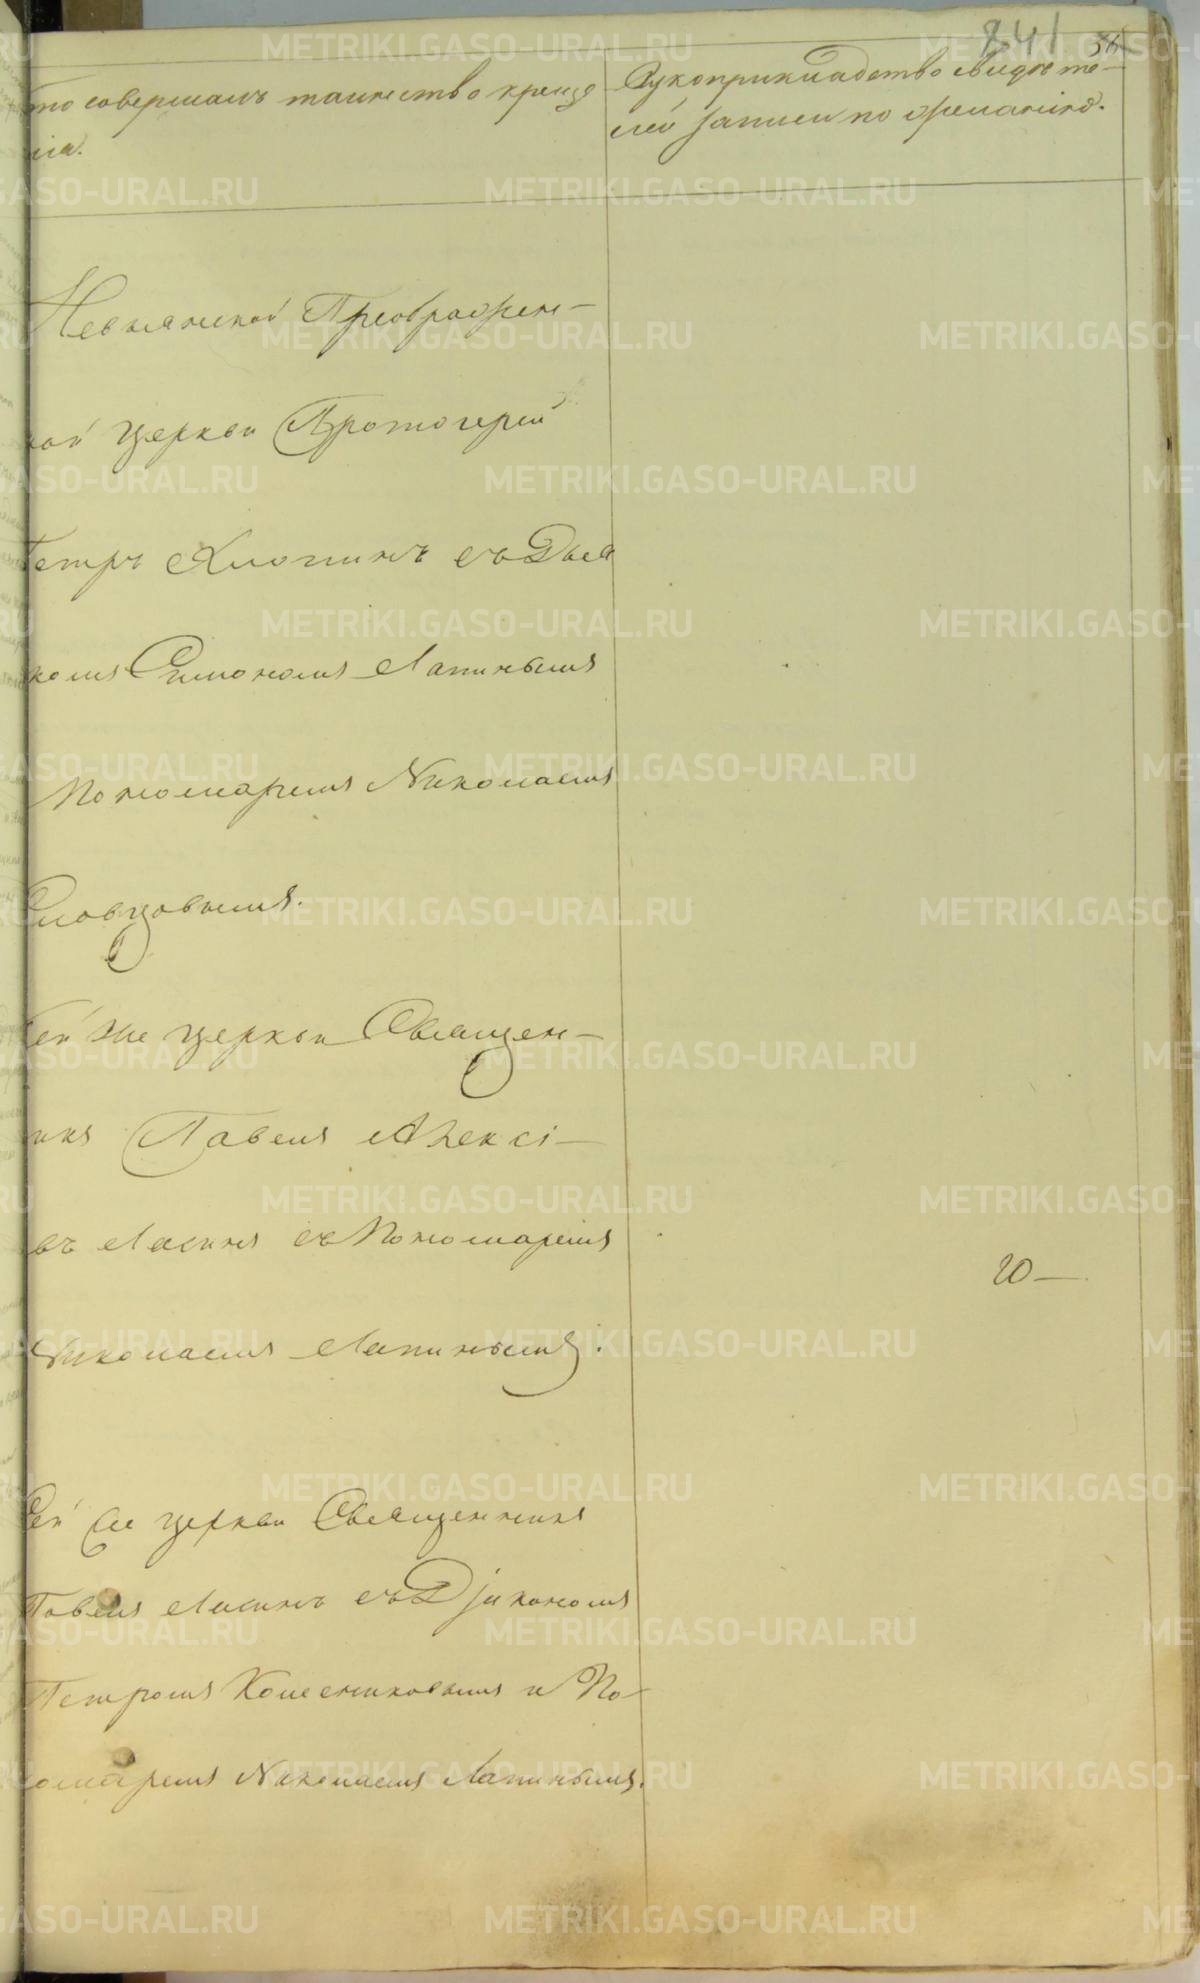 841 56
то совершалъ таинство креще
нія.
Рукоприкладство свидѣте-
лей записи по желанію.
Невьянской Преображен-
кой церкви Протоіерей
Петръ Хлопинъ съ Дья
комъ Симономъ Лапинымъ
Пономаремъ Николаемъ
Словцовымъ.
Той же церкви Священ-
никъ Павелъ Алексі-
въ съ Пономаремъ
20—
Николаемъ Лапинымъ.
Той же церкви Священникъ
Павелъ съ Діакономъ
Петромъ Колесниковымъ и По-
омаремъ Николаемъ Лапинымъ.
METRIKI.GASO-URAL.RU